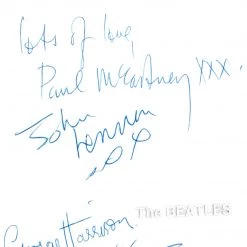 lots of love
Paul McCartney xxx.
John
Lennon
x
The BEATLES
George Harrison